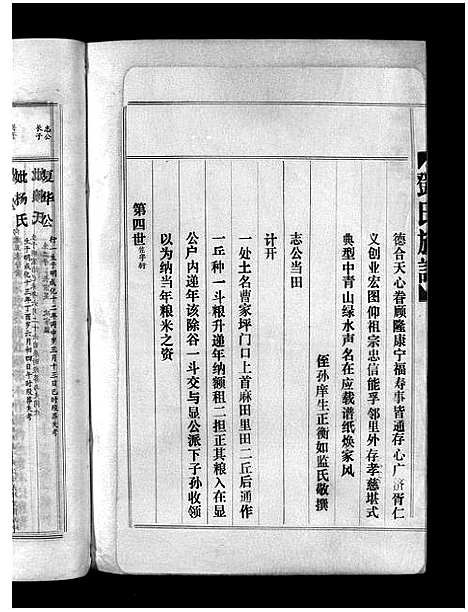 鄧氏族譜
德合天心眷顾隆康宁福寿事皆通存心广济胥仁
义创业宏图仰祖宗忠信能孚邻里外存孝慈堪式
典型中青山绿水声名在应载谱纸焕家风
侄孙庠生正衡如监氏敬撰
志公当田
计开
一处土名曹家坪门口上首麻田里田二丘后通作
一丘种一斗粮升递年纳额租二担正其粮入在显
公户内递年该除谷一斗交与显公派下子孙收领
以为纳当年粮米之资
第四世
志公
长子
复华公
妣杨氏